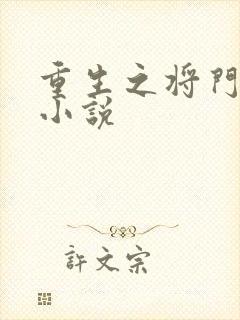 重生之将门
小说
許文宗